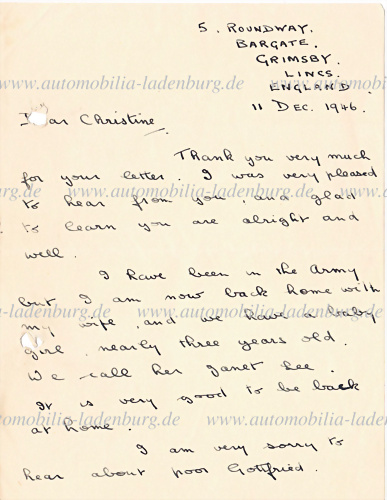 5. ROUNDWAY.
BARGATE.
GRIMSBY.
LINCS.
ENGLAND.
11 DEC. 1946.
www.automobilia-ladenburg.de
Dear Christine,
Thank you very much
for your letter. I was very pleased
www.automobilia-ladenburg.de
to hear from you, and glad
to learn you are alright and
well.
I have been in the Army
but I am now back home with
www.automobilia-ladenburg.de
my wife, and we have a baby
girl, nearly three years old.
We call her Janet Lee.
It is very good to be back
www.automobilia-ladenburg.de
at home.
I am very sorry to
hear about poor Gottfried.